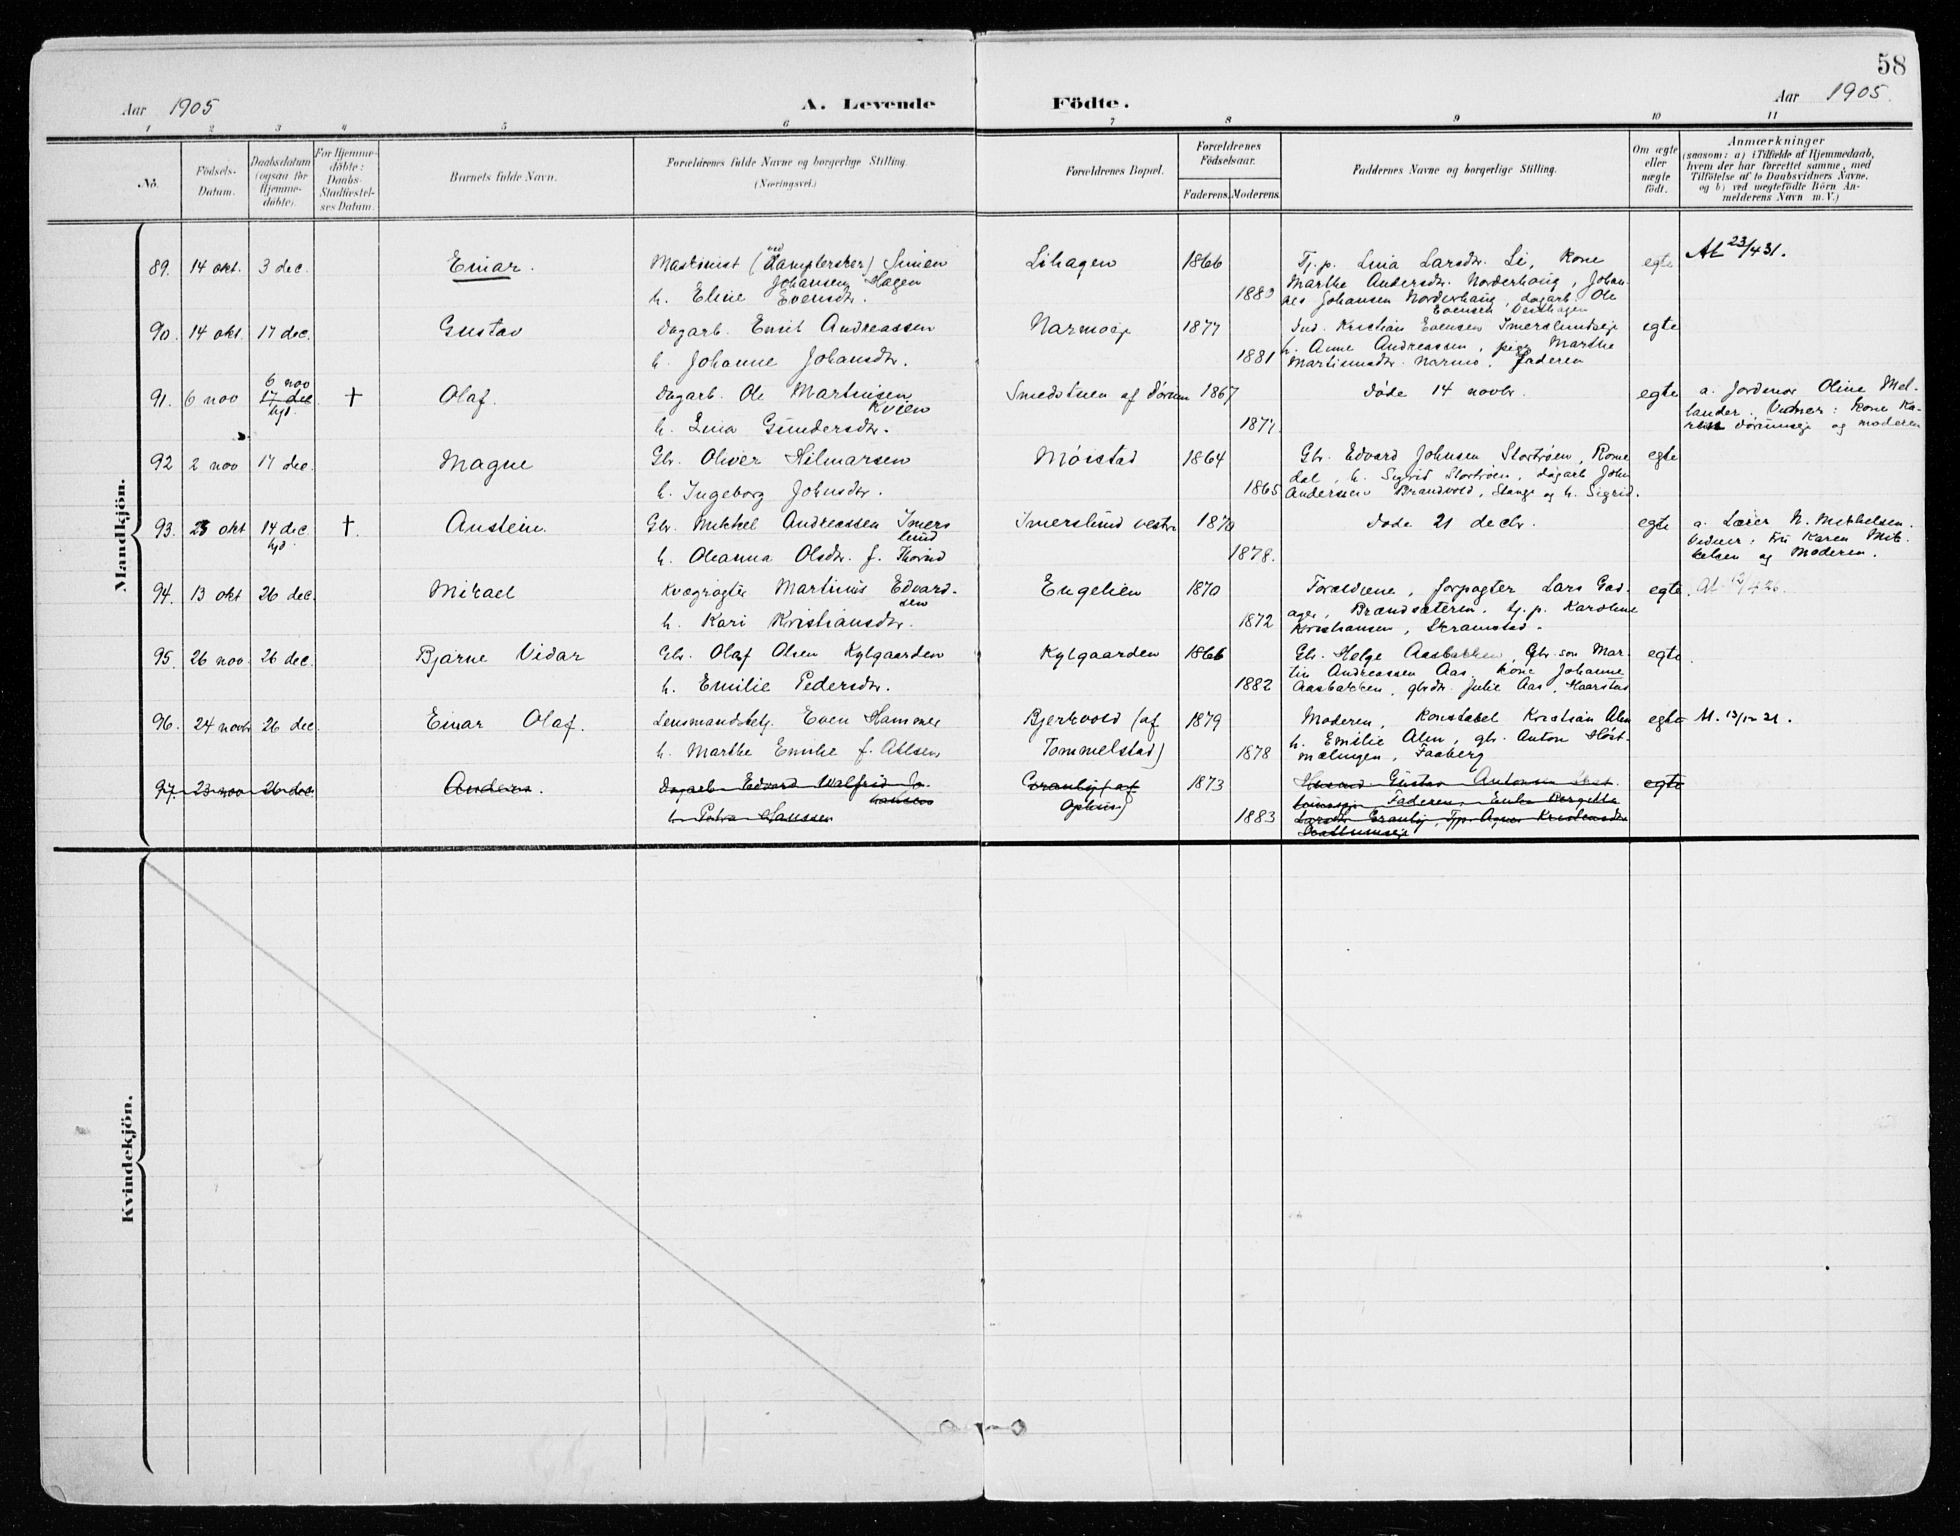 58
Aar 1905
A. Levende Födte.
Aar 1905.
1 2 3 4 5 6 7 8 9 10 11
No.
Födsels-Datum.
Daabsdatum (ogsaa for Hjemme-döbte).
For Hjemme-döbte: Daabs-Stadfæstel-ses Datum.
Barnets fulde Navn.
Forældrenes fulde Navne og borgerlige Stilling.
(Næringsvei.)
Forældrenes Bopæl.
Forældrenes Födselsaar.
Faderens. Moderens.
Faddernes Navne og borgerlige Stilling.
Om ægte eller uægte födt.
Anmærkninger
(saasom: a) i Tilfælde af Hjemmedaab,
hvem der har forrettet samme, med
Tilföielse af to Daabsvidners Navne.
og b) ved uægtefödte Börn An-
melderens Navn m. V.)
Mandkjön.
89. 14 okt. 3 dec. Einar. Maskinist (ved Simen
Johansen Hagen
h. Eline Evensdtr.
Lihagen 1866 1880
Tj.p. Lina Larsdtr. Li, Kone
Marthe Andersdtr. Norderhaug, Johan-
nes Johansen Norderhaug, dagarb. Ole
Evensen Vesthagen
egte
At 23/4 31.
90. 14 okt. 17 dec. Gustav Dagarb. Emil Andreassen
h. Johanne Johansdtr.
Narmoeje 1877 1881
Ind. Kristian Evensen Imerslundseje
h. Anne Andreassen, pige Marthe
Martinusdtr. Narmo, Faderen
egte
91. 6 nov 6 nov
17 dec.
hjd. † Olaf. Dagarb. Ole Martinsen
Kvien
h. Lina Gundersdtr.
Smedstuen af Dørum 1867 1877
Døde 14 novbr.
egte
a. Jordmor Oline Mel-
lander. Vidner: Kone Ka-
ren Dørumseje og moderen
92 2 nov 17 dec. Magne Gbr. Oliver Hilmarsen
h. Ingeborg Johnsdtr.
Møistad 1864 1865
Gbr. Edvard Johnsen Stortrøen, Roms-
dal, h. Sigrid Stortrøen, dagarb. John
Andersen Brandvold, Stange og h. Sigrid.
egte
93. 23 okt 14 dec.
hjd. †. Austein. Gbr. Mikkel Andreassen Imers
lund
h. Oleanna Olsdtr. f. Thorud
Imerslund vestre 1870 1878.
Døde 21 decbr.
egte
a. Lærer N. Mikkelsen.
Vidner: Fru Karen Mik-
kelsen og Moderen.
94. 13 okt 26 dec. Mikael Kvægrøgter Martinus Edvard-
sen
h. Kari Kristiansdtr.
Engelien 1870 1872
Forældrene, forpagter Lars Gad-
ager, Brændsæteren. tj. p. Karoline
Kristiansen, Skramstad.
egte.
95. 26 nov. 26 dec. Bjarne Vidar Gbr. Olaf Olsen Kylgaarden
h. Emilie Pedersdtr.
Kylgaarden 1866 1882
Gbr. Helge Aasbakken, Gbr.søn Mar-
tin Andreassen Aas, kone Johanne
Aasbakken, gbrdtr. Julie Aas, Haarstad
egte
96. 24 novbr 26 dec. Einar Olaf. Lensmandsbetj. Even Hammer
h. Marthe Emilie f. Atlsen
Bjerkvold (af
Tommelstad)
1879 1878
Moderen, Konstabel Kristian Alm
h. Emilie Alm, gbr. Anton Høst-
mælingen, Faaberg
egte
At. 13/12 21.
97. 23 nov 26 dec. Anders. Dagarb. Edvard Walfrid Jo-
hansen
h. Petra Hanssen
Granly (af
Opsal)
1873 1883
Gustav Antonsen
Faderen, Enke Bergette
Larsdtr. Granly, Tjp. Agnes Kristiansdtr.
egte
Kvindekjön.